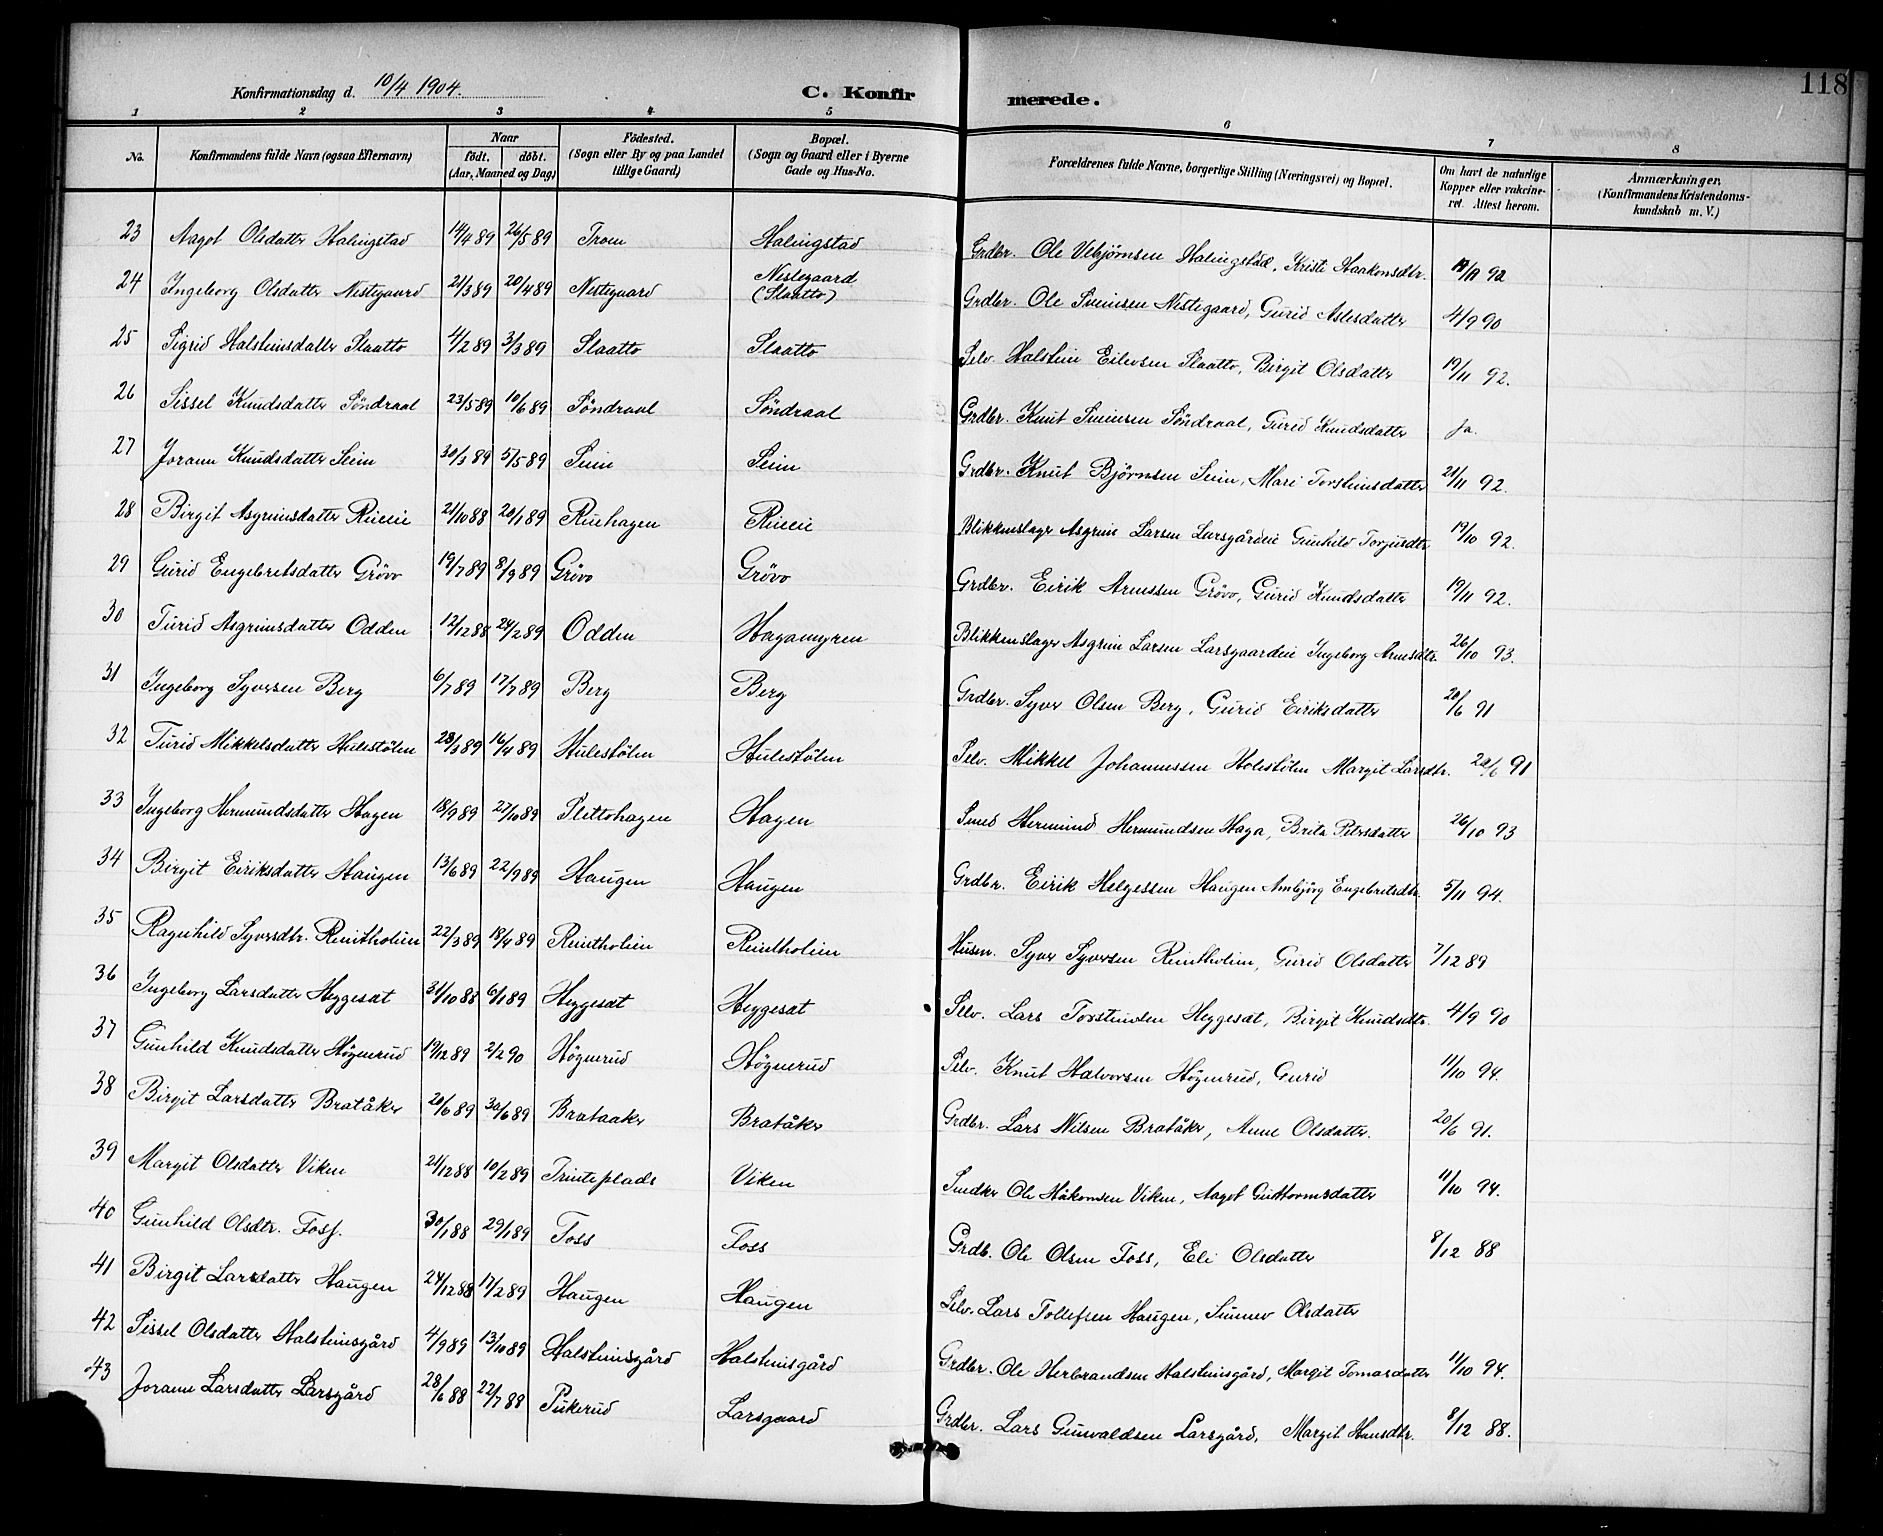 118
Konfirmationsdag d. 10/4 1904. C. Konfirmerede.
1 2 3 4 5 6 7 8
No. Konfirmandens fulde Navn (ogsaa Efternavn) Naar født. døbt. (Aar, Maaned og Dag) Fødested. (Sogn eller By og paa Landet tillige Gaard) Bopæl. (Sogn og Gaard eller i Byerne Gade og Hus-No. Forældrenes fulde Navne, borgerlige Stilling (Næringsvei) og Bopæl. Om havt de naturlige Kopper eller vakcineret. Attest herom. Anmærkninger. (Konfirmandens Kristendomskundskab m. V.)
23 Aagot Olsdatter Halingstad 14/4 89 26/5 89 Halingstad Grdbr. Ole Vebjørnsen Halingstad, Kristi Haakensdtr. 92
24 Ingeborg Olsdatter Nestegaard 21/3 89 20/4 89 Nestegaard Nestegaard (Slaatto) Grdbr. Ole Sveinsen Nestegaard, Gurid Aslesdatter 4/9 90
25 Sigrid Halsteinsdatter Slaatto 4/2 89 3/3 89 Slaatto Slaatto Selv. Halstein Eilevsen Slaatto, Birgit Olsdatter 19/11 92.
26 Sissel Knudsdatter Søndraal 23/5 89 10/6 89 Søndraal Søndraal Grdbr. Knut Sveinsen Søndraal, Gurid Knudsdatter ja.
27 Jorann Knudsdatter Seim 30/3 89 5/5 89 Seim Seim Grdbr. Knut Bjørnsen Seim, Mari Torsteinsdatter 21/11 92.
28 Birgit Asgrimsdatter 21/10 88 20/1 89 Blikkenslager Asgrim Larsen Gunhild Torjusdtr 19/10 92.
29 Gurid Engebretsdatter Grøvo 19/7 89 8/9 89 Grøvo Grøvo Grdbr. Eirik Arnessen Grøvo, Gurid Knudsdatter 19/11 92.
30 Turid Asgrimsdatter Odden 12/12 88 24/2 89 Odden Hagamyren Blikkenslager Asgrim Larsen Larsgaardeie Ingeborg Arnesdtr. 26/10 93.
31 Ingeborg Syversen Berg 6/7 89 17/7 89 Berg Berg Grdbr. Syver Olsen Berg, Gurid Eiriksdatter 20/6 91
32 Turid Mikkelsdatter Hulestølen 28/3 89 16/4 89 Hulestølen Hulestølen Selv. Mikkel Johannessen Holestølen Margit Larsdtr. 20/6 91
33 Ingeborg Hermundsdatter Hagen 18/9 89 27/10 89 Slettohagen Hagen Smed Hermund Hermundsen Haga, Brita Petersdatter 26/10 93
34 Birgit Eiriksdatter Haugen 13/6 89 22/9 89 Haugen Haugen Grdbr. Eirik Helgessen Haugen Ambjørg Engebretsdtr. 5/11 94.
35 Ragnhild Syversdtr. Reintholein 22/3 89 18/4 89 Reintholein Reintholein Husm. Syver Syversen Reintholein, Gurid Olsdatter 7/12 89
36 Ingeborg Larsdatter Heggesæt 31/10 88 6/1 89 Heggesæt Heggesæt Selv. Lars Torsteinsen Heggesæt, Birgit Knudsdtr. 4/9 90
37 Gunhild Knudsdatter Høgnerud 19/12 89 2/2 90 Høgnerud Høgnerud Selv. Knut Halvorsen Høgnerud, Gurid 11/10 94.
38 Birgit Larsdatter Bratåker 20/6 89 30/6 89 Brataaker Bratåker Grdbr. Lars Nilsen Bratåker, Anne Olsdatter. 20/6 91.
39 Margit Olsdatter Viken 21/12 88 10/2 89 Trinteplads Viken Snedker Ole Håkonsen Viken, Aagot Guttormsdatter 11/10 94.
40 Gunhild Olsdtr. Foss. 30/1 88 29/1 89 Foss Foss Grdb. Ole Olsen Foss, Eli Olsdatter 8/12 88
41 Birgit Larsdatter Haugen 24/12 88 17/2 89 Haugen Haugen Selv. Lars Tollefsen Haugen, Sunnev Olsdatter
42 Sissel Olsdatter Halsteinsgård 4/9 89 13/10 89 Halsteinsgård Halsteinsgård Grdbr. Ole Herbrandsen Halsteinsgård, Margit Tomasdatter 11/10 94.
43 Jorann Larsdatter Larsgård 28/6 88 22/7 88 Pukerud Larsgaard Grdbr. Lars Gunvaldsen Larsgård, Margit Hansdtr. 8/12 88.